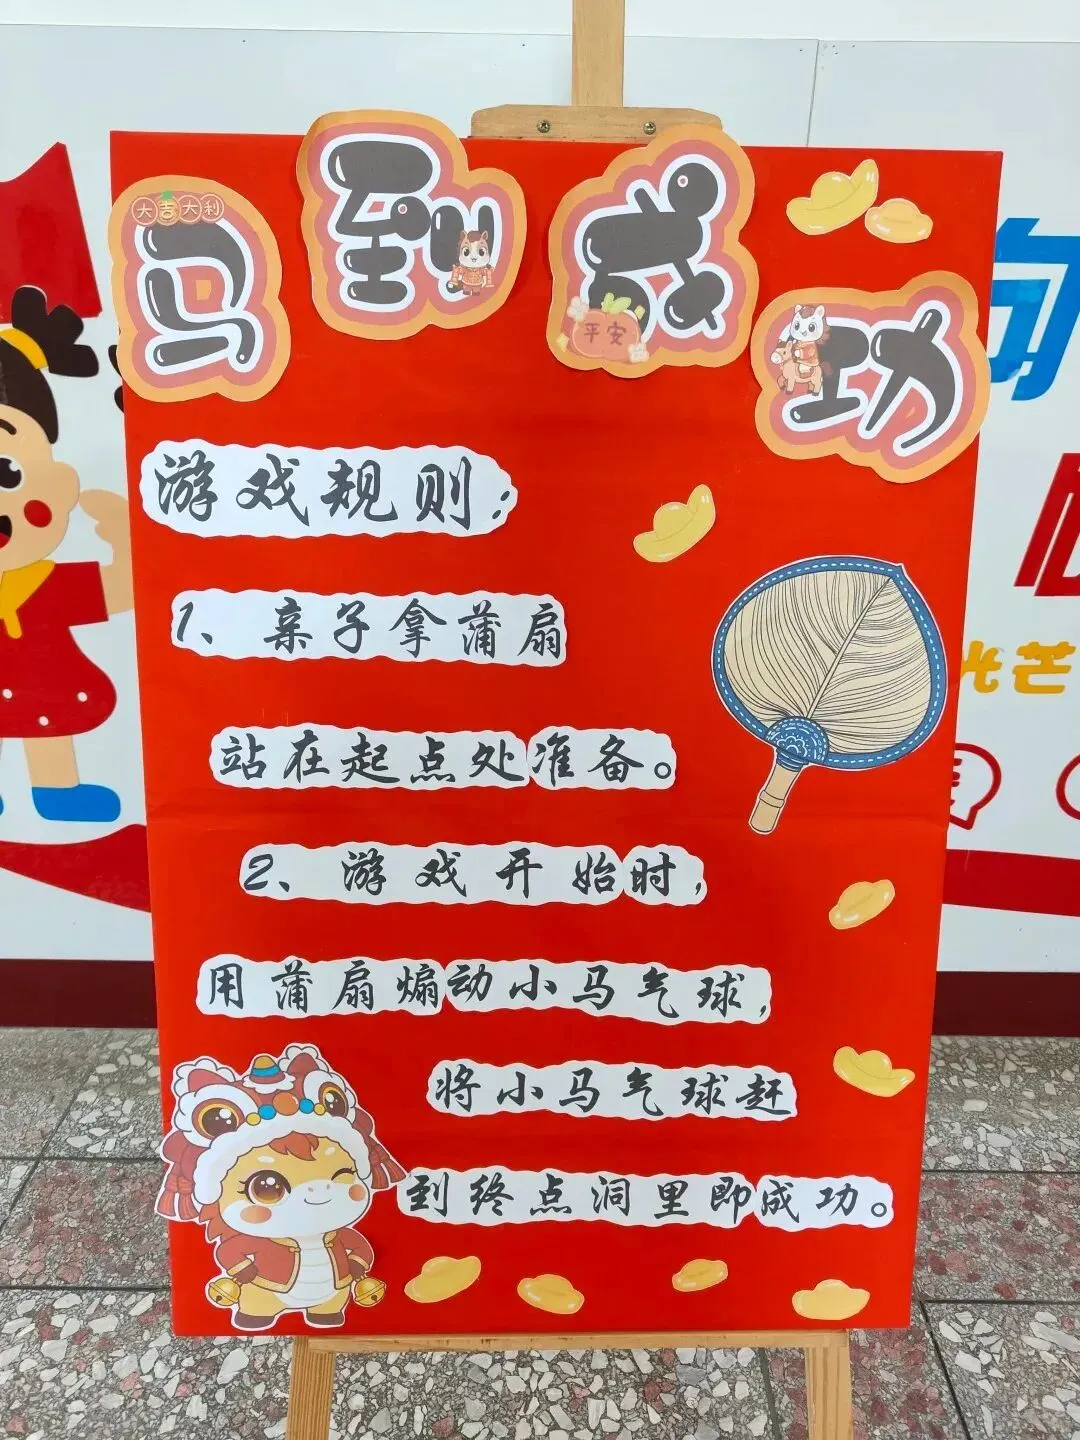 大吉大利
马到成功
平安
游戏规则：
1、亲子拿蒲扇
站在起点处准备。
2、游戏开始时，
用蒲扇煽动小马气球，
将小马气球赶
到终点洞里即成功。
光芒